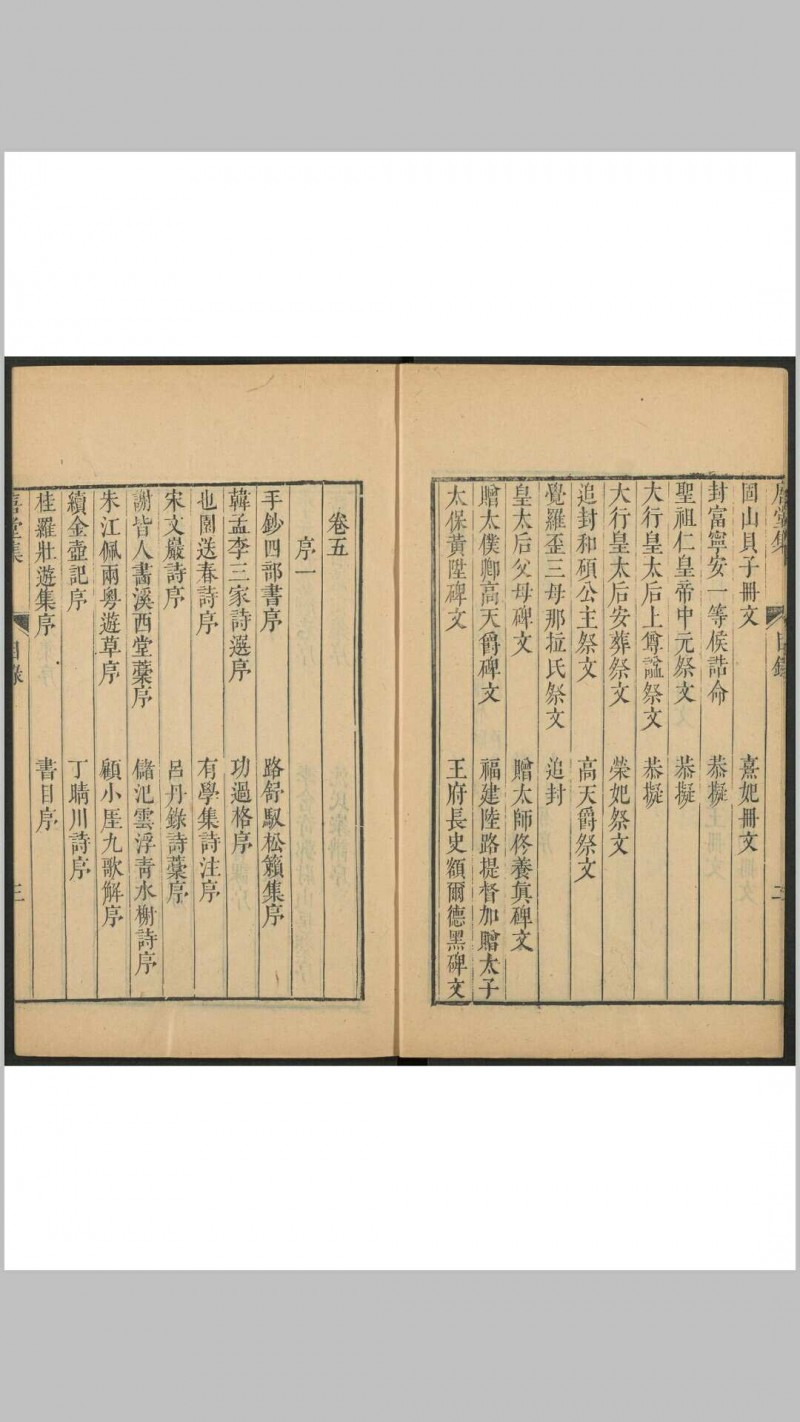 堂集
目錄
固山貝子冊文　熹妃冊文
封富寧安一等侯誥命　恭擬
聖祖仁皇帝中元祭文　恭擬
大行皇太后上尊謚祭文　恭擬
大行皇太后安葬祭文　榮妃祭文
追封和碩公主祭文　高天爵祭文
覺羅歪三母那拉氏祭文　追封
皇太后父母碑文　贈太師佟養真碑文
贈太僕卿高天爵碑文　福建陸路提督加贈太子
太保黃陞碑文　王府長史額爾德黑碑文
卷五
序一
手鈔四部書序　路舒馭松籟集序
韓孟李三家詩選序　功過格序
也園送春詩序　有學集詩注序
宋文巖詩序　呂丹錄詩藁序
謝皆人書溪西堂藁序　儲氾雲浮靑水榭詩序
朱江佩兩粵遊草序　顧小厓九歌解序
續金壺記序　丁晴川詩序
桂羅壯遊集序　書目序
堂集
目錄
三